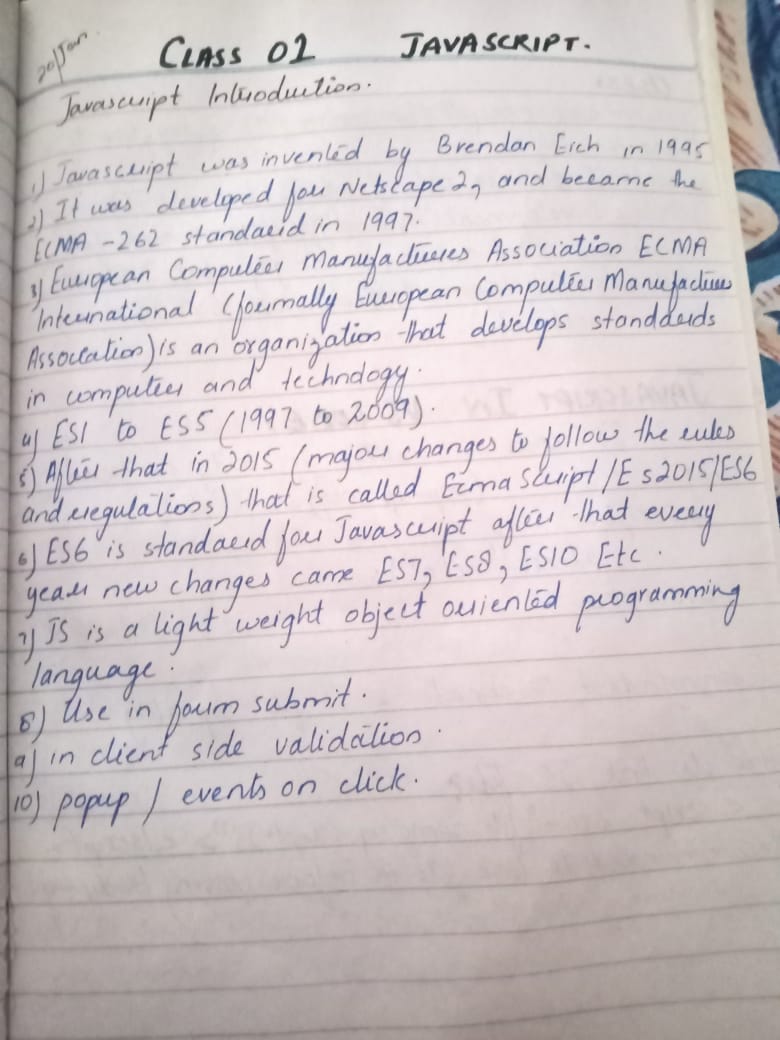 20/Jan.
CLASS 02 JAVASCRIPT.
Javascript Introduction.
1) Javascript was invented by Brendan Eich in 1995
2) It was developed for Netscape 2, and became the
ECMA -262 standard in 1997.
3) European Computer Manufactureres Association ECMA
International (formally European Computer Manufacture
Association) is an organization that develops standderds
in computer and technology.
4) ES1 to ES5 (1997 to 2009).
5) After that in 2015 (major changes to follow the rules
and regulations) that is called Ecma Script/Es2015/ES6
6) ES6 is standard for Javascript after that every
year new changes came ES7, ES8, ES10 Etc.
7) JS is a light weight object oriented programming
language.
8) Use in form submit.
9) in client side validation.
10) popup / events on click.